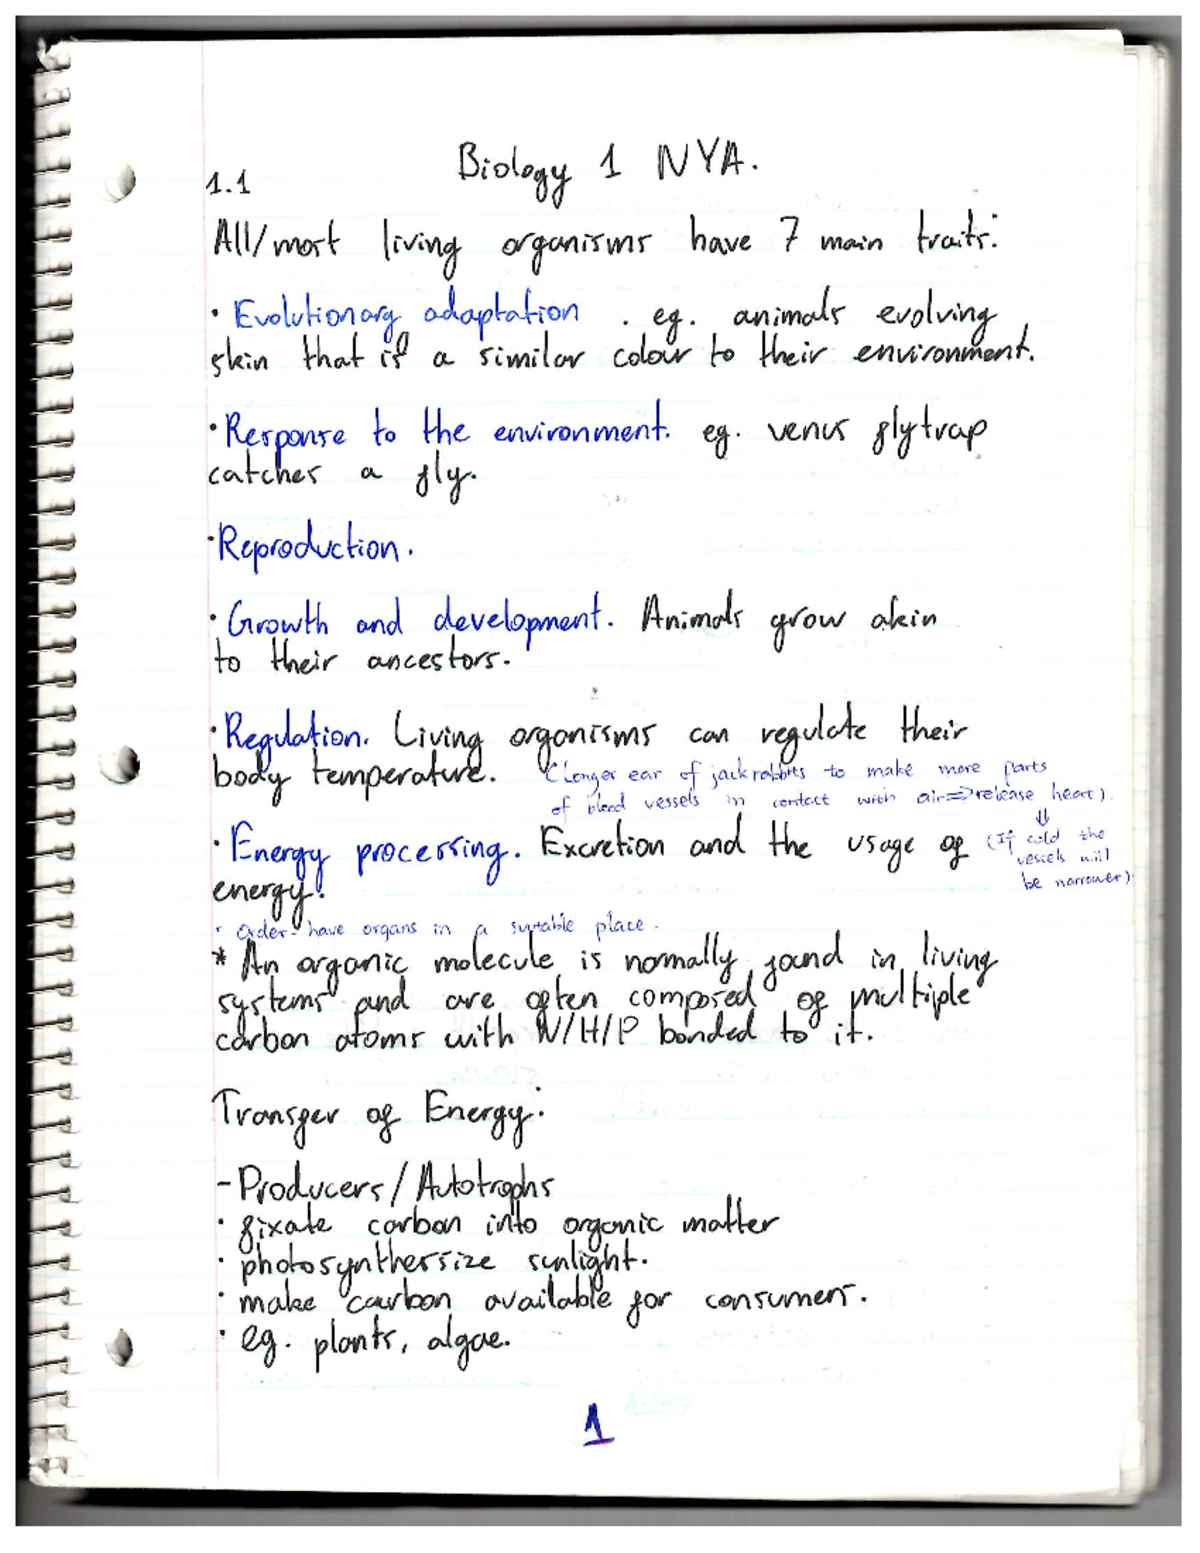 Biology 1 NYA.
1.1
All/most living organisms have 7 main traits:
· Evolutionary adaptation . eg. animals evolving
skin that is a similar colour to their environment.
· Response to the environment. eg. venus flytrap
catches a fly.
· Reproduction.
· Growth and development. Animals grow akin
to their ancestors.
· Regulation. Living organisms can regulate their
body temperature. (Longer ear of jackrabbits to make more parts
of blood vessels in contact with air => release heat).
⇓
· Energy processing. Excretion and the usage of (If cold the
vessels will
energy. be narrower)
· Order - have organs in a suitable place.
* An organic molecule is normally found in living
systems and are often composed of multiple
carbon atoms with N/H/P bonded to it.
Transfer of Energy:
- Producers/Autotrophs
· fixate carbon into organic matter
· photosynthersize sunlight.
· make carbon available for consumers.
· eg. plants, algae.
1